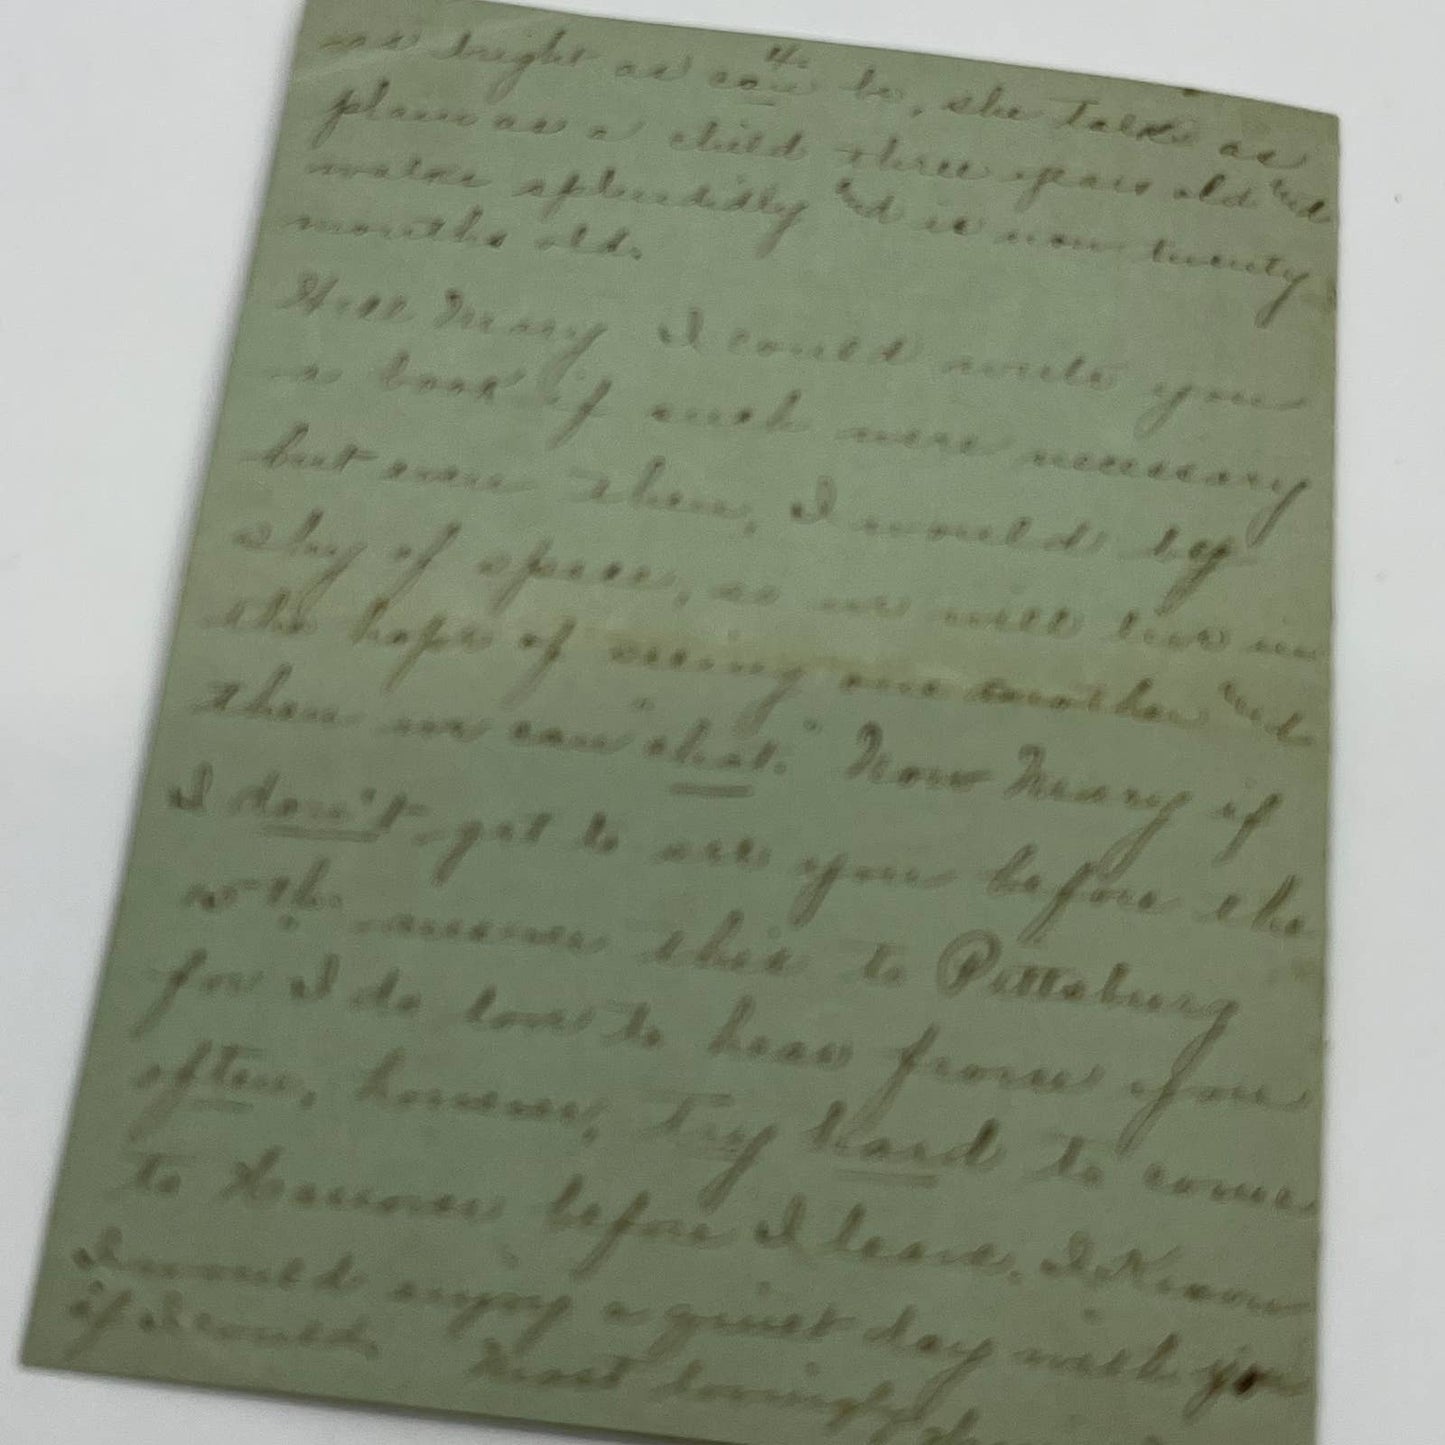 4.
as bright as can be, she talks as
plain as a child three years old and
walks splendidly and is now twenty
months old.
Well Mary I could write you
a book if such were necessary
but even then, I would be
shy of space, as we will live in
the hope of seeing one another and
then we can "chat." Now Mary if
I don't get to see you before the
answer this to Pittsburg
for I do love to hear from you
often, however, try hard to come
to Hanover before I leave. I Know
I would enjoy a quiet day with you
if I could.
Most lovingly